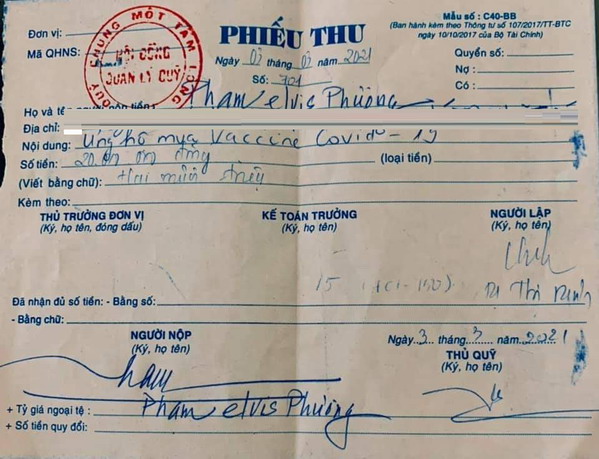 Mẫu số : C40-BB
(Ban hành kèm theo Thông tư số 107/2017/TT-BTC
ngày 10/10/2017 của Bộ Tài Chính)
Đơn vị:
Mã QHNS:
QUỸ CHUNG MỘT TẤM LÒNG
HỘI ĐỒNG
QUẢN LÝ QUỸ
PHIẾU THU
Ngày 03 tháng 03 năm 2021
Số: 701
Quyển số:
Nợ :
Có :
Họ và tên người nộp tiền: Pham elvis Phương
Địa chỉ:
Nội dung: ủng hộ mua Vaccine Covid-19
Số tiền: (loại tiền)
(Viết bằng chữ): Hai mươi triệu
Kèm theo:
THỦ TRƯỞNG ĐƠN VỊ KẾ TOÁN TRƯỞNG NGƯỜI LẬP
(Ký, họ tên, đóng dấu) (Ký, họ tên) (Ký, họ tên)
Đã nhận đủ số tiền: - Bằng số:
- Bằng chữ:
Ngày 3 tháng 3 năm 2021
NGƯỜI NỘP THỦ QUỸ
(Ký, họ tên) (Ký, họ tên)
Pham elvis Phương
+ Tỷ giá ngoại tệ :
+ Số tiền quy đổi: